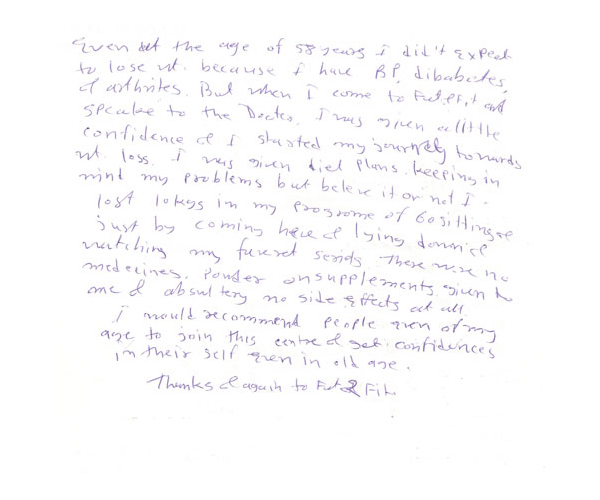 Even at the age of 58 years I did't Expect
to lose wt. because I have BP, dibabetes,
& arthrites. But when I come to Fat2Fit and
speake to the Doctor, I was given a little
confidence & I started my journey towards
wt. loss. I was given diet plans keeping in
mind my problems but beleve it or not I
lost 10kgs in my programe of 60 sittings
just by coming here & lying down &
watching my favret serials There were no
medecines, Powder or supplements given to
me & absultery no side effects at all.
I would recommend people even of my
age to join this centre & get confidences
in their self even in old age.
Thanks & again to Fat 2 Fit